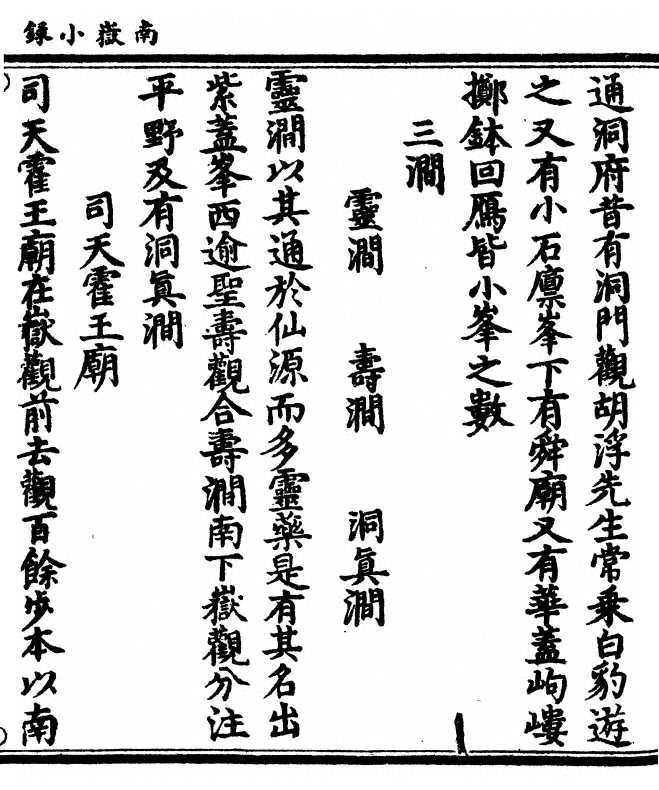 南嶽小錄
通洞府昔有洞門觀胡浮先生常乗白豹遊
之又有小石廩峯下有舜廟又有華蓋岣嶁
擲鉢回鴈皆小峯之數
三澗
靈澗 壽澗 洞真澗
靈澗以其通於仙源而多靈藥是有其名出
紫蓋峯西逾聖壽觀合壽澗南下嶽觀分注
平野及有洞真澗
司天霍王廟
司天霍王廟在嶽觀前去觀百餘步本以南